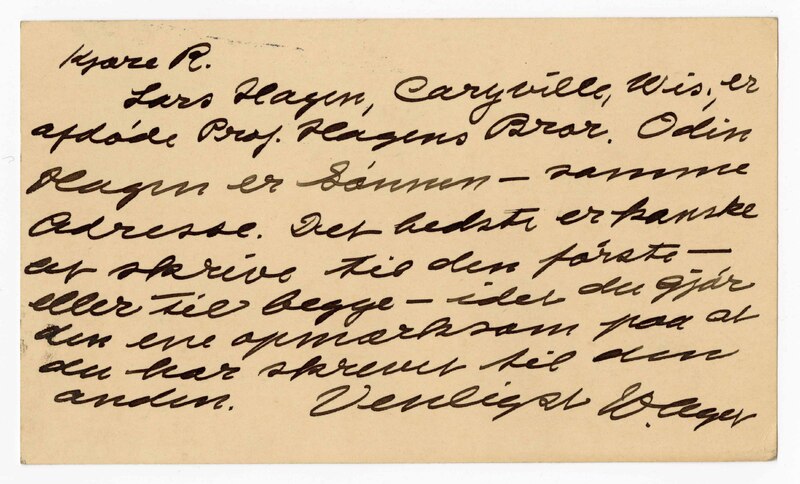 Kjære R.
Lars Hagen, Caryville, Wis., er
afdøde Prof. Hagens Bror. Odin
Hagen er Sønnen – samme
Adresse. Det bedste er kanske
at skrive til den første –
eller til begge – idet du gjør
den ene opmærksom paa at
du har skrevet til den
anden. Venligst W. Ager